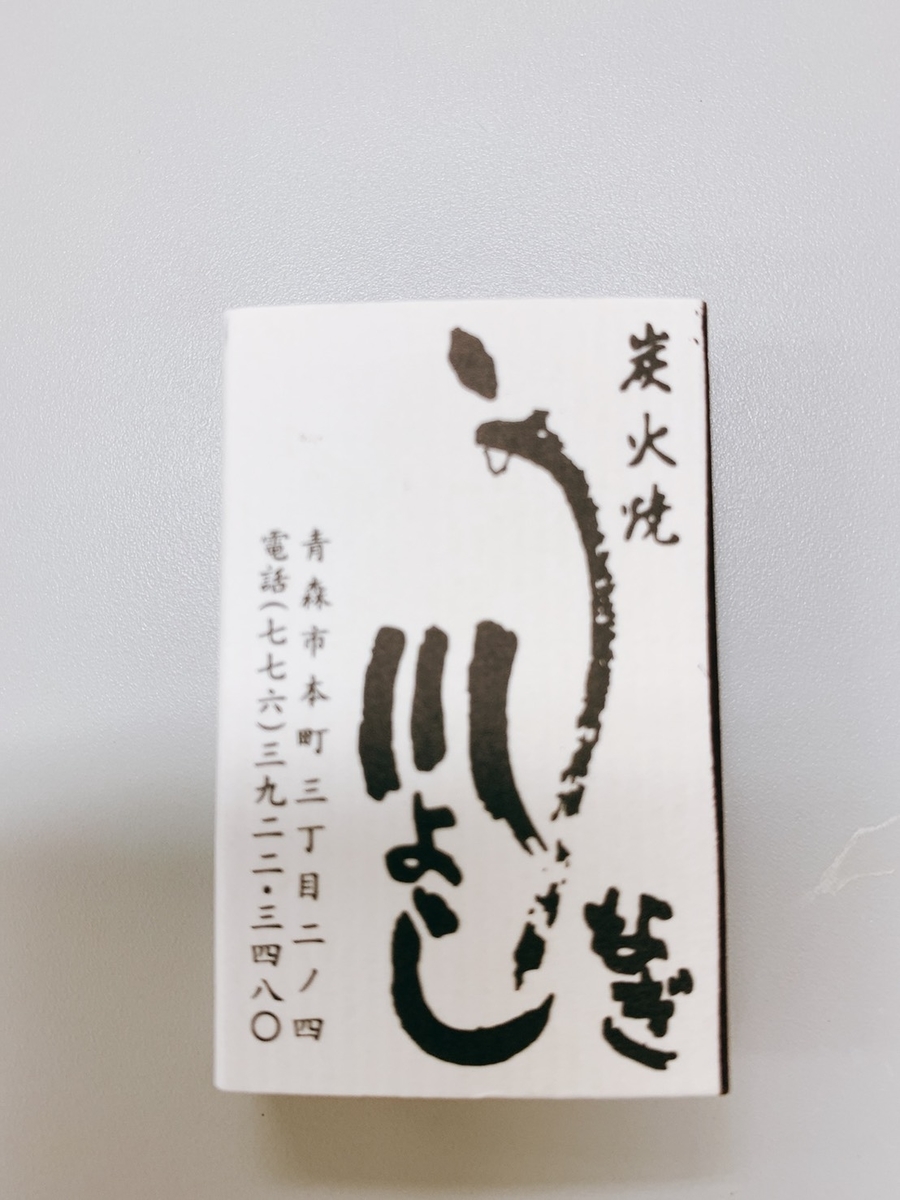 炭火焼
うなぎ
川よし
青森市本町三丁目二ノ四
電話(七七六)三九二二・三四八〇